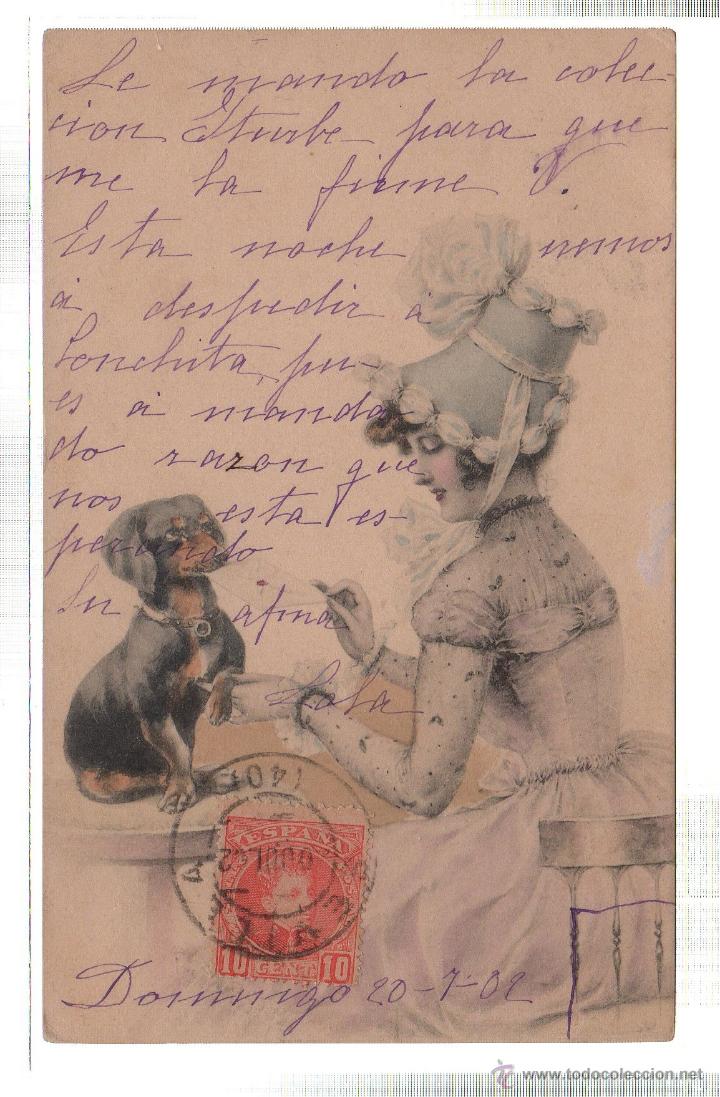 Le mando la colec-
cion Iturbe para que
me la firme V.
Esta noche iremos
á despedir á
Conchita, pu-
es á manda
do razon que
nos esta es-
perando
Su afma
Lola
ESPAÑA
10 CENT 10
Domingo 20-7-02
www.todocoleccion.net